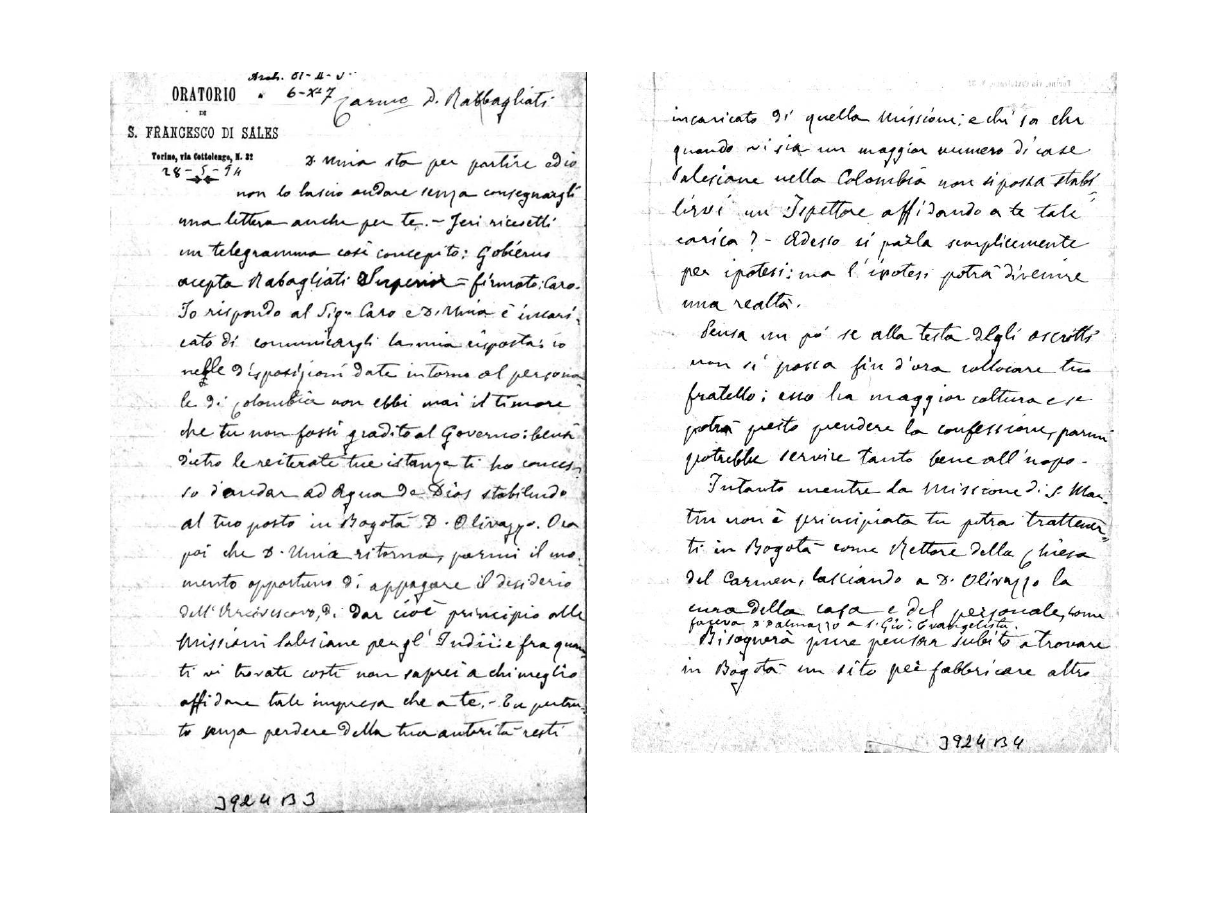 Arch. 01-II-5
6-XII 7
ORATORIO
DI
S. FRANCESCO DI SALES
Torino, via Cottolengo, N. 32
28-5-94
Carmo D. Rabbagliati
D. Unia sta per partire ed io
non lo lascio andare senza consegnargli
una lettera anche per te. - Jeri ricevetti
un telegramma così concepito: Gobierno
acepta Rabagliati Superior = firmato: Caro.
Io rispondo al Sigr Caro e D. Unia è incari-
cato di comunicargli la mia risposta: io
nelle disposizioni date intorno al persona
le di Colombia non ebbi mai il timore
che tu non fossi gradito al Governo: bensì
dietro le reiterate tue istanze ti ho conces-
so d'andar ad Agua de Dios stabilendo
al tuo posto in Bogotà D. Olivazzo. Ora
poi che D. Unia ritorna, parmi il mo-
mento opportuno di appagare il desiderio
dell'Arcivescovo, di dar cioè principio alle
Missioni Salesiane per gl'Indii: e fra quan
ti vi trovate costì non saprei a chi meglio
affidare tale impresa che a te. - Tu pertan-
to senza perdere della tua autorità resti
3924 B 3
incaricato di quella Missione; e chi sa che
quando vi sia un maggior numero di case
Salesiane nella Colombia non si possa stabi-
lirvi un Ispettore affidando a te tale
carica? - Adesso si parla semplicemente
per ipotesi: ma l'ipotesi potrà divenire
una realtà.
Pensa un pò se alla testa degli ascritti
non si possa fin d'ora collocare tuo
fratello; esso ha maggior coltura e se
potrà presto prendere la confessione, parmi
potrebbe servire tanto bene all'uopo.
Intanto mentre la Missione di S. Mar-
tin non è principiata tu potrai trattener-
ti in Bogotà come Rettore della Chiesa
del Carmen, lasciando a D. Olivazzo la
cura della casa e del personale, come
faceva D. Dalmazzo a S. Giov. Evangelista.
Bisognerà pure pensar subito a trovare
in Bogotà un sito per fabbricare altro
3924 B 4